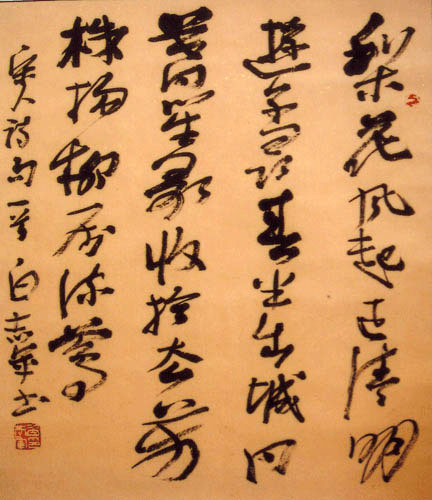 梨花风起正清明
遊子尋春半出城日
暮笙歌收拾去萬
株楊柳属流鶯
宋人詩句一首 白志 书